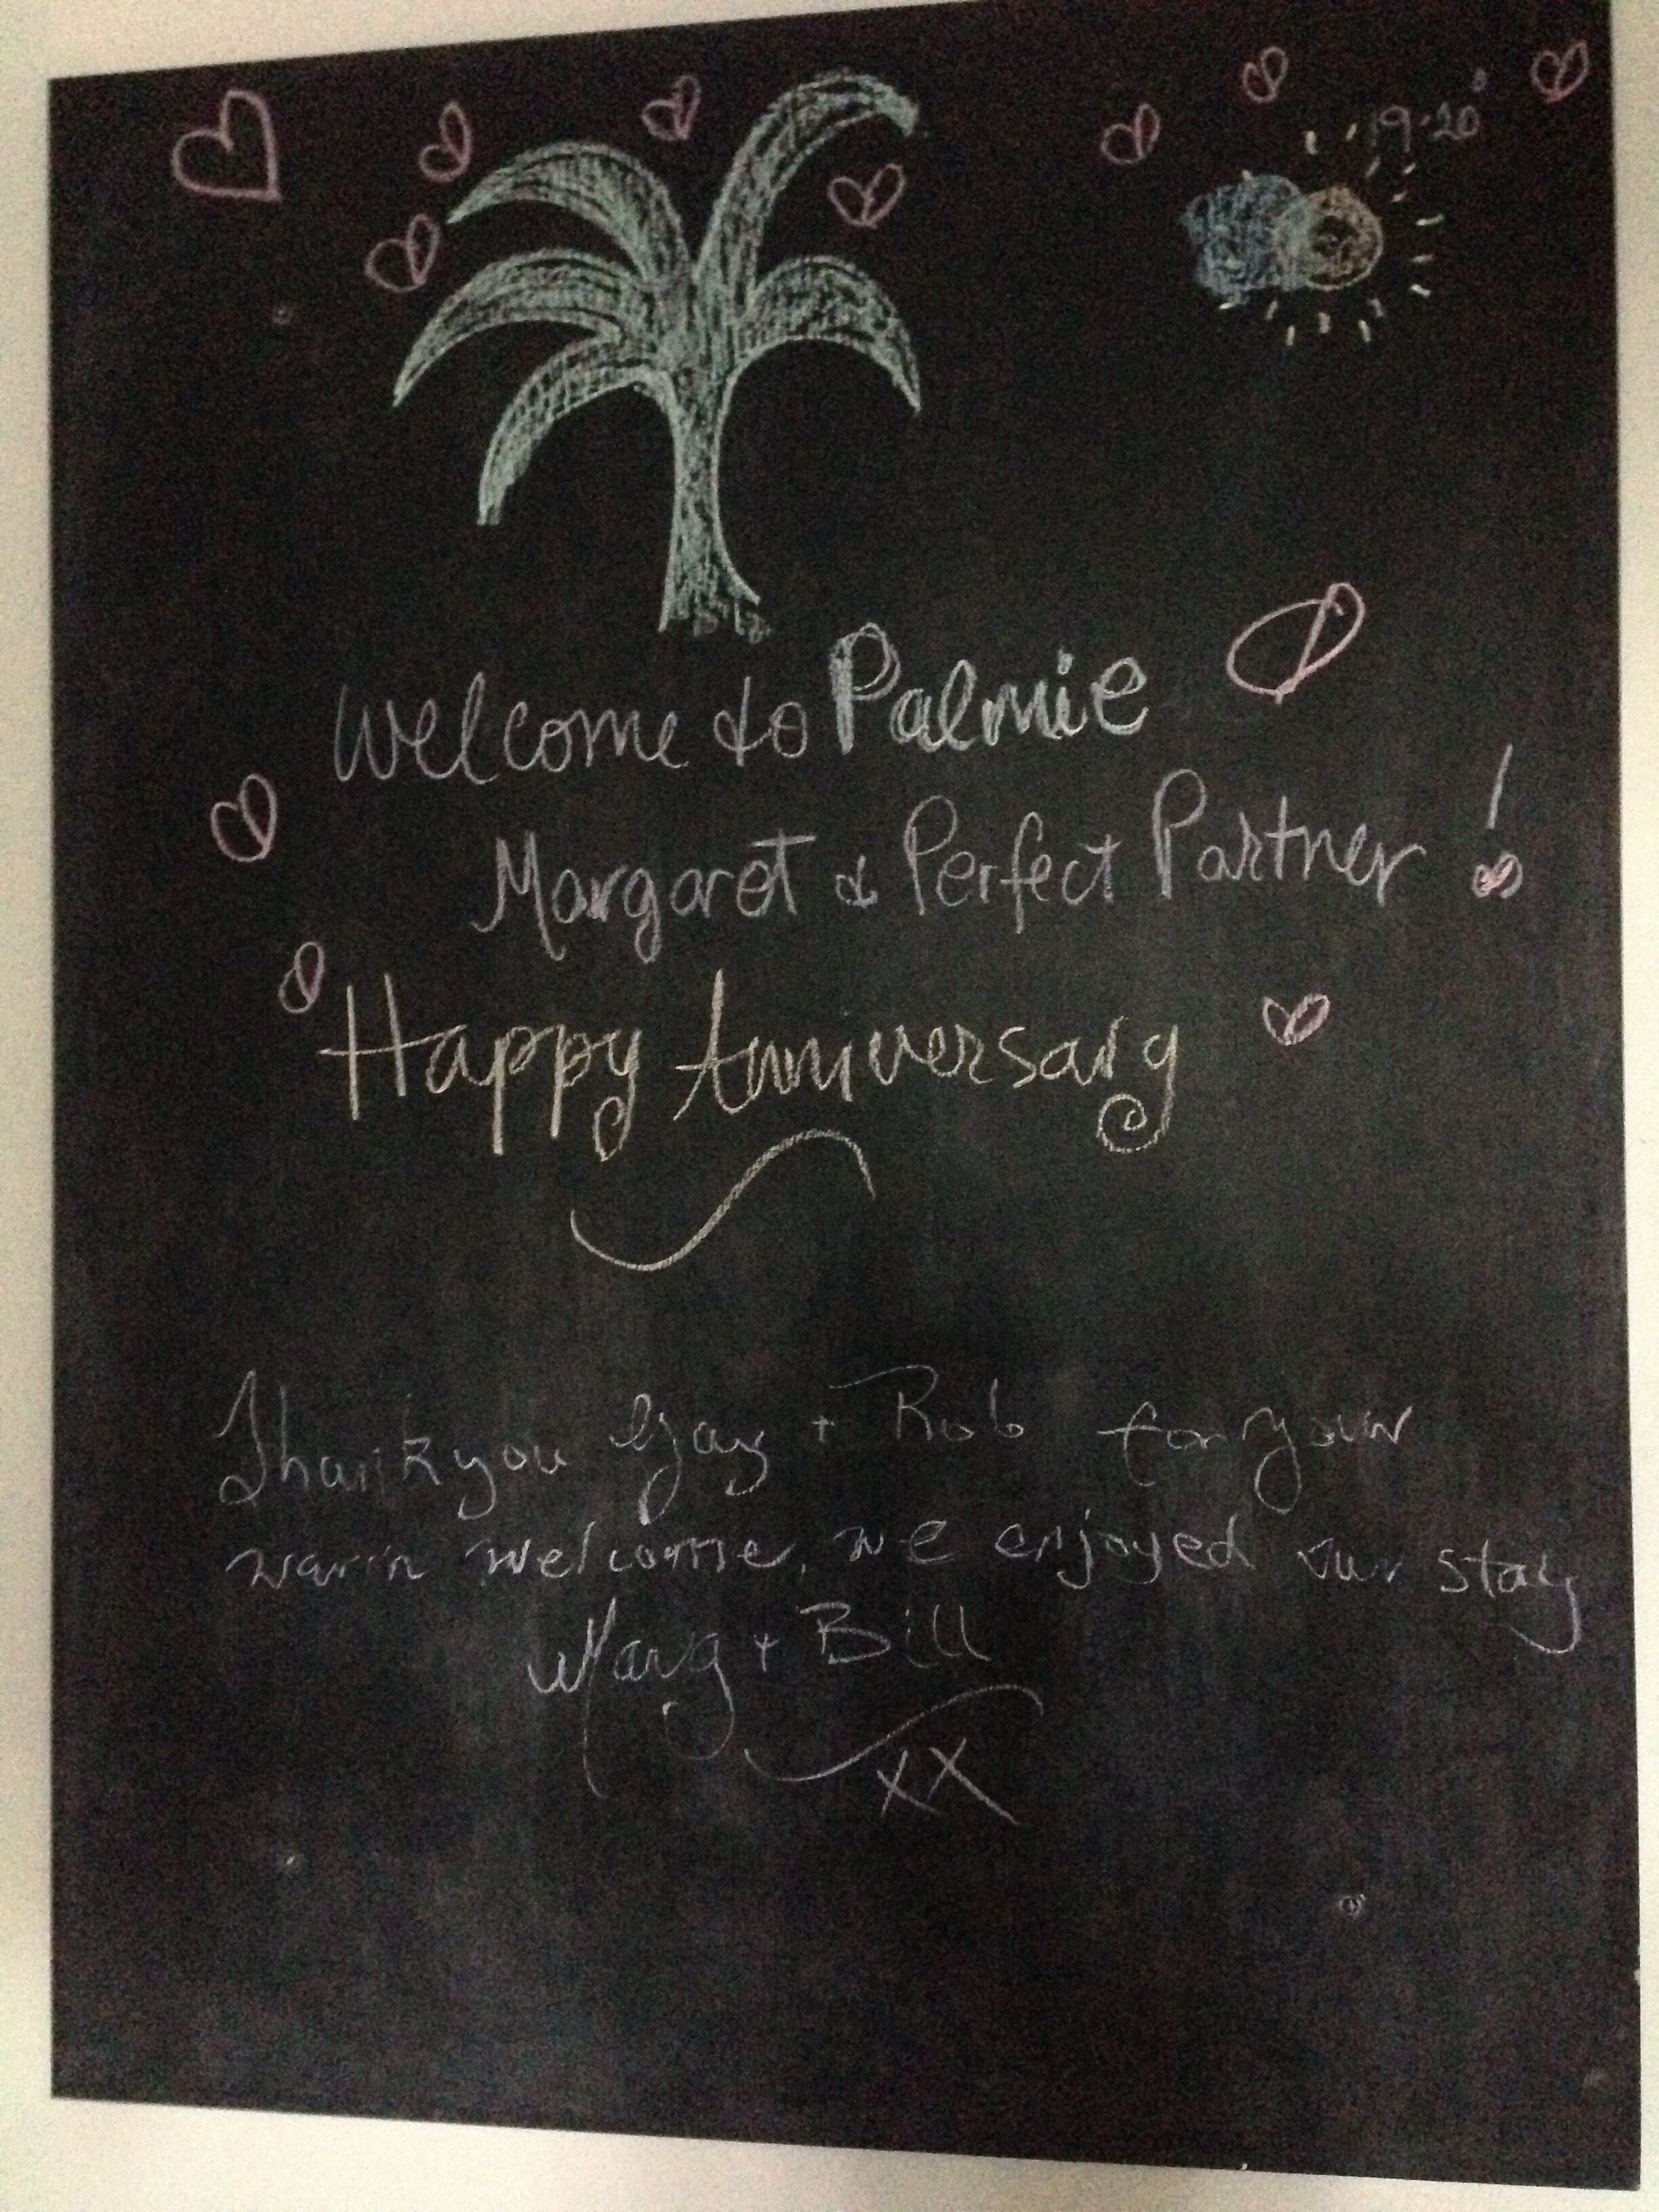 19-20°
Welcome to Palmie
Margaret & Perfect Partner !
Happy Anniversary
Thankyou Gay + Rob for your
warm welcome, we enjoyed our stay
Marg + Bill
xx